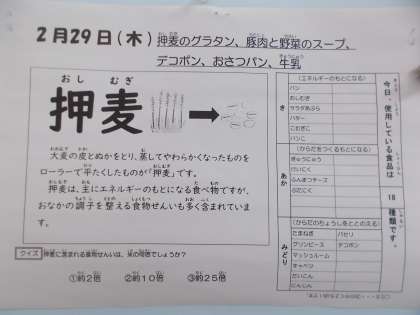 2月29日(木) 押麦のグラタン、豚肉と野菜のスープ、
デコポン、おさつパン、牛乳
おし むぎ
押麦
大麦の皮とぬかをとり、蒸してやわらかくなったものを
ローラーで平たくしたものが「押麦」です。
押麦は、主にエネルギーのもとになる食べ物ですが、
おなかの調子を整える食物せんいも多く含まれていま
す。
クイズ 押麦に含まれる食物せんいは、米の何倍でしょうか?
①約2倍 ②約10倍 ③約25倍
今日、使用している食品は
18
種類です。
き
(エネルギーのもとになる)
パン
おしむぎ
サラダあぶら
バター
こむぎこ
パンこ
あか
(からだをつくるもとになる)
ぎゅうにゅう
けいにく
ふんまつチーズ
ぶたにく
みどり
(からだのちょうしをととのえる)
たまねぎ パセリ
グリンピース デコポン
マッシュルーム
キャベツ
だいこん
にんじん